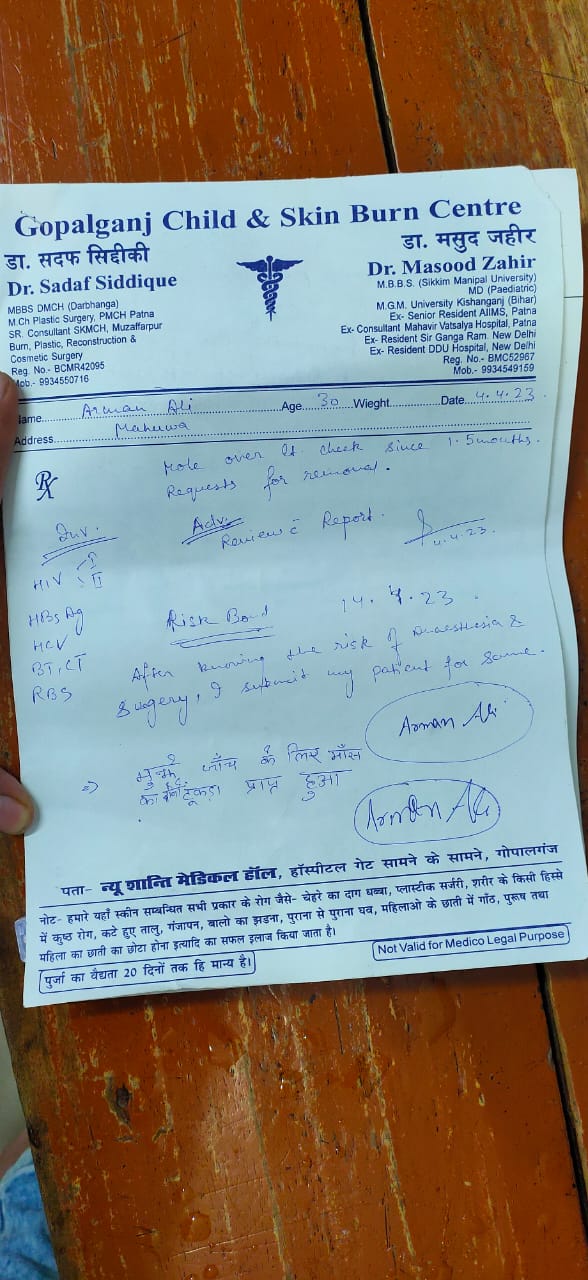 Gopalganj Child & Skin Burn Centre
डा. सदफ सिद्दीकी
Dr. Sadaf Siddique
MBBS DMCH (Darbhanga)
M.Ch Plastic Surgery, PMCH Patna
SR. Consultant SKMCH, Muzaffarpur
Burn, Plastic, Reconstruction &
Cosmetic Surgery
Reg. No.- BCMR42095
Mob.- 9934550716
डा. मसुद जहीर
Dr. Masood Zahir
M.B.B.S. (Sikkim Manipal University)
MD (Paediatric)
M.G.M. University Kishanganj (Bihar)
Ex- Senior Resident AIIMS, Patna
Ex- Consultant Mahavir Vatsalya Hospital, Patna
Ex- Resident Sir Ganga Ram. New Delhi
Ex- Resident DDU Hospital, New Delhi
Reg. No.- BMC52967
Mob.- 9934549159
Name Arman Ali Age 30 Wieght Date 4.4.23
Address Mahuwa
Rx
Mole over Lt cheek since 1.5 months.
Requests for removal.
Inv.
HIV I II
HBsAg
HCV
BT, CT
RBS
Adv.
Review c̄ Report.
4.4.23.
Risk Bond 14.4.23.
After knowing the risk of Anaesthesia &
Surgery, I submit my patient for same.
Arman Ali
⇒ मुझे जाँच के लिए माँस
का टूकड़ा प्राप्त हुआ
Arman Ali
पता- न्यू शान्ति मेडिकल हॉल, हॉस्पीटल गेट सामने के सामने, गोपालगंज
नोट- हमारे यहाँ स्कीन सम्बन्धित सभी प्रकार के रोग जैसे- चेहरे का दाग धब्बा, प्लास्टीक सर्जरी, शरीर के किसी हिस्से
में कुष्ठ रोग, कटे हुए तालु, गंजापन, बालो का झडना, पुराना से पुराना घव, महिलाओ के छाती में गाँठ, पुरूष तथा
महिला का छाती का छोटा होना इत्यादि का सफल इलाज किया जाता है।
पुर्जा का वैद्यता 20 दिनों तक हि मान्य है।
Not Valid for Medico Legal Purpose